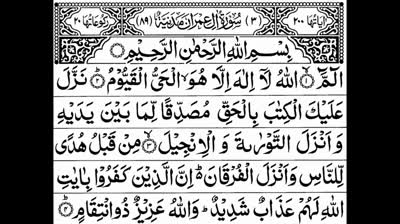 اٰیَاتُهَا ٢٠٠ (٣) سُوْرَةُ اٰلِ عِمْرٰنَ مَدَنِیَّةٌ (٨٩) رُكُوْعَاتُهَا ٢٠
بِسْمِ اللّٰهِ الرَّحْمٰنِ الرَّحِیْمِ
الٓمّٓ ۙ﴿١﴾ اللّٰهُ لَاۤ اِلٰهَ اِلَّا هُوَ ۙ الْحَیُّ الْقَیُّوْمُ ؕ﴿٢﴾ نَزَّلَ
عَلَیْكَ الْكِتٰبَ بِالْحَقِّ مُصَدِّقًا لِّمَا بَیْنَ یَدَیْهِ
وَ اَنْزَلَ التَّوْرٰىةَ وَ الْاِنْجِیْلَ ۙ﴿٣﴾ مِنْ قَبْلُ هُدًی
لِّلنَّاسِ وَ اَنْزَلَ الْفُرْقَانَ ؕ۬ اِنَّ الَّذِیْنَ كَفَرُوْا بِاٰیٰتِ
اللّٰهِ لَهُمْ عَذَابٌ شَدِیْدٌ ؕ وَ اللّٰهُ عَزِیْزٌ ذُو انْتِقَامٍ ؕ﴿٤﴾